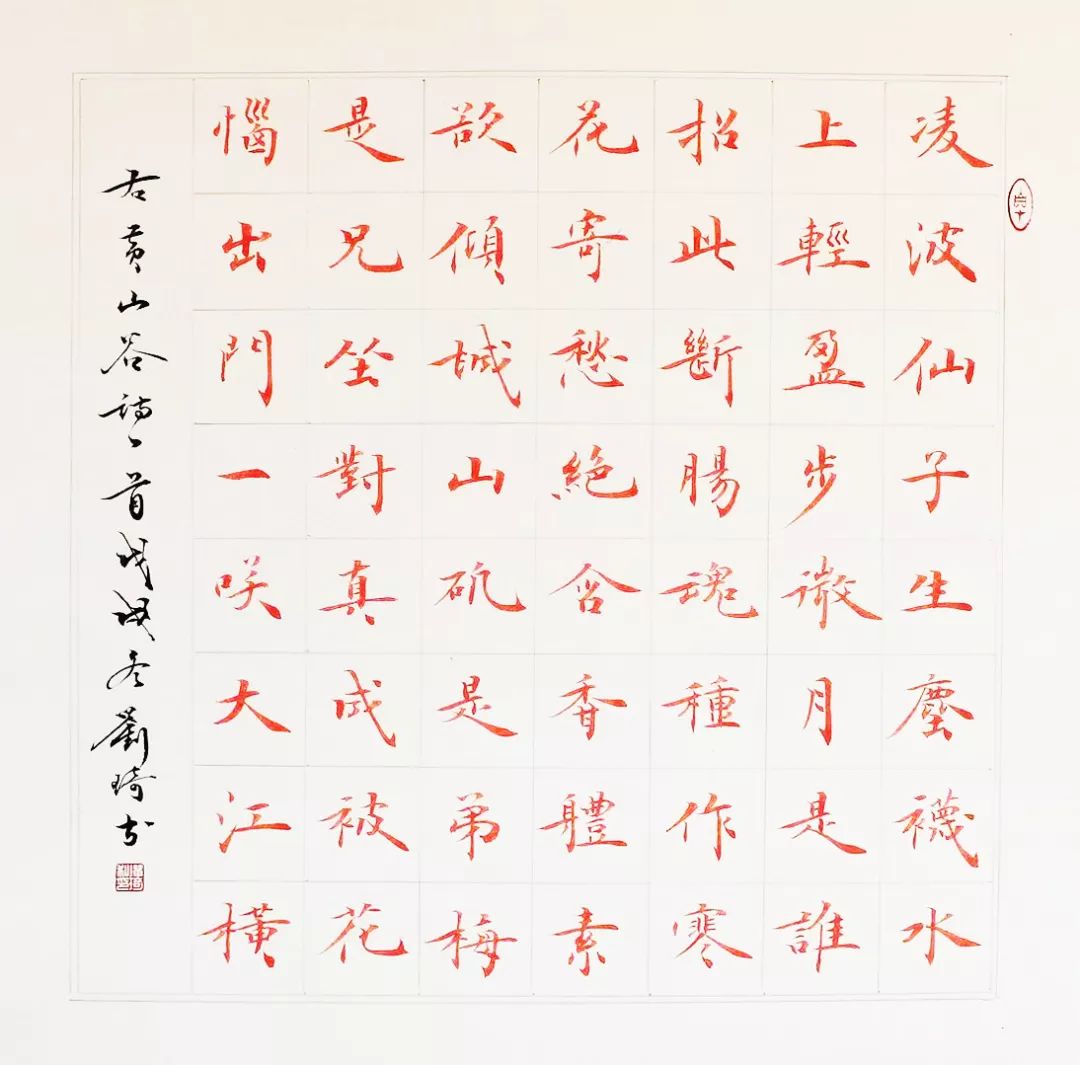 凌波仙子生塵襪水
上輕盈步微月是誰
招此斷腸魂種作寒
花寄愁絕含香體素
欲傾城山矾是弟梅
是兄坐對真成被花
惱出門一咲大江橫
右黃山谷詩一首戊戌冬劉琦书